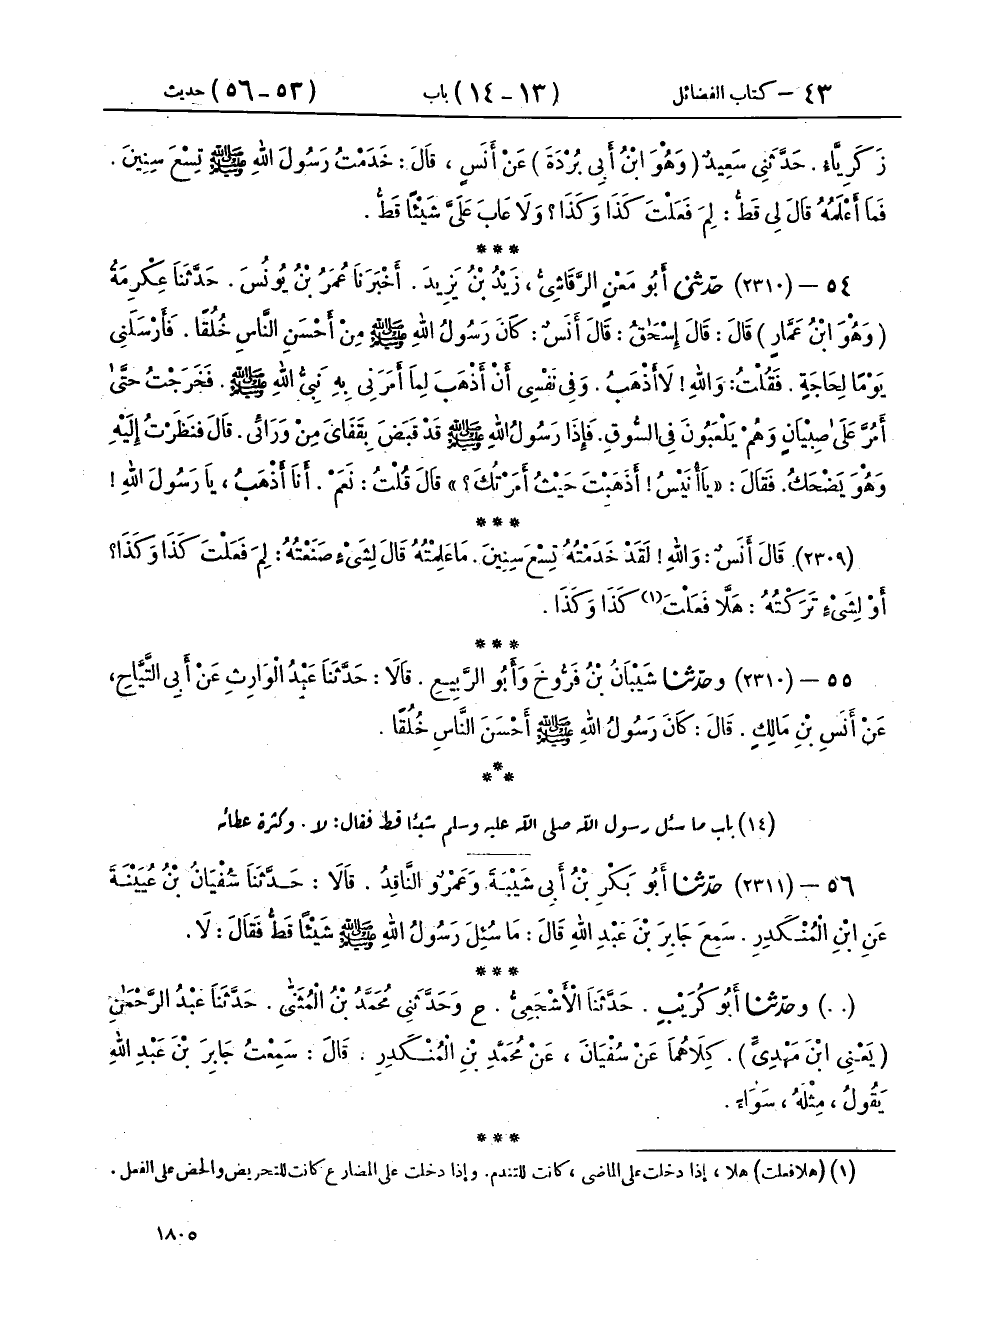 ٤٣ – كتاب الفضائل (١٣ – ١٤) باب (٥٣ – ٥٦) حديث
زَكَرِيَّاءِ . حَدَّثَنِي سَعِيدٌ ( وَهُوَ ابْنُ أَبِي بُرْدَةَ ) عَنْ أَنَسٍ ، قَالَ : خَدَمْتُ رَسُولَ اللهِ ﷺ تِسْعَ سِنِينَ .
فَمَا أَعْلَمُهُ قَالَ لِي قَطُّ : لِمَ فَعَلْتَ كَذَا وَكَذَا ؟ وَلَا عَابَ عَلَيَّ شَيْئًا قَطُّ .
***
٥٤ – (٢٣١٠) حَدَّثَنِي أَبُو مَعْنٍ الرَّقَاشِيُّ ، زَيْدُ بْنُ يَزِيدَ . أَخْبَرَنَا عُمَرُ بْنُ يُونُسَ . حَدَّثَنَا عِكْرِمَةُ
( وَهُوَ ابْنُ عَمَّارٍ ) قَالَ : قَالَ إِسْحَٰقُ : قَالَ أَنَسٌ : كَانَ رَسُولُ اللهِ ﷺ مِنْ أَحْسَنِ النَّاسِ خُلُقًا . فَأَرْسَلَنِي
يَوْمًا لِحَاجَةٍ . فَقُلْتُ : وَاللهِ ! لَا أَذْهَبُ . وَفِي نَفْسِي أَنْ أَذْهَبَ لِمَا أَمَرَنِي بِهِ نَبِيُّ اللهِ ﷺ . فَخَرَجْتُ حَتَّىٰ
أَمُرَّ عَلَىٰ صِبْيَانٍ وَهُمْ يَلْعَبُونَ فِي السُّوقِ. فَإِذَا رَسُولُ اللهِ ﷺ قَدْ قَبَضَ بِقَفَايَ مِنْ وَرَائِي . قَالَ فَنَظَرْتُ إِلَيْهِ
وَهُوَ يَضْحَكُ. فَقَالَ : « يَا أُنَيْسُ ! أَذَهَبْتَ حَيْثُ أَمَرْتُكَ ؟ » قَالَ قُلْتُ : نَعَمْ . أَنَا أَذْهَبُ ، يَا رَسُولَ اللهِ !
***
(٢٣٠٩) قَالَ أَنَسٌ : وَاللهِ ! لَقَدْ خَدَمْتُهُ تِسْعَ سِنِينَ . مَا عَلِمْتُهُ قَالَ لِشَيْءٍ صَنَعْتُهُ : لِمَ فَعَلْتَ كَذَا وَكَذَا ؟
أَوْ لِشَيْءٍ تَرَكْتُهُ : هَلَّا فَعَلْتَ (١) كَذَا وَكَذَا .
***
٥٥ – (٢٣١٠) وحَدَّثَنَا شَيْبَانُ بْنُ فَرُّوخَ وَأَبُو الرَّبِيعِ . قَالَا : حَدَّثَنَا عَبْدُ الْوَارِثِ عَنْ أَبِي التَّيَّاحِ ،
عَنْ أَنَسِ بْنِ مَالِكٍ . قَالَ : كَانَ رَسُولُ اللهِ ﷺ أَحْسَنَ النَّاسِ خُلُقًا .
***
(١٤) باب ما سئل رسول الله صلى الله عليه وسلم شيئا قط فقال : لا . وكثرة عطائه
٥٦ – (٢٣١١) حَدَّثَنَا أَبُو بَكْرِ بْنُ أَبِي شَيْبَةَ وَعَمْرٌو النَّاقِدُ . قَالَا : حَدَّثَنَا سُفْيَانُ بْنُ عُيَيْنَةَ
عَنِ ابْنِ الْمُنْكَدِرِ . سَمِعَ جَابِرَ بْنَ عَبْدِ اللهِ قَالَ : مَا سُئِلَ رَسُولُ اللهِ ﷺ شَيْئًا قَطُّ فَقَالَ : لَا .
***
(..) وحَدَّثَنَا أَبُو كُرَيْبٍ . حَدَّثَنَا الْأَشْجَعِيُّ . ح وَحَدَّثَنِي مُحَمَّدُ بْنُ الْمُثَنَّىٰ . حَدَّثَنَا عَبْدُ الرَّحْمَٰنِ
( يَعْنِي ابْنَ مَهْدِيٍّ ) . كِلَاهُمَا عَنْ سُفْيَانَ ، عَنْ مُحَمَّدِ بْنِ الْمُنْكَدِرِ . قَالَ : سَمِعْتُ جَابِرَ بْنَ عَبْدِ اللهِ
يَقُولُ ، مِثْلَهُ ، سَوَاءً .
***
(١) (هلا فعلت) هلا ، إذا دخلت على الماضي ، كانت للتندم . وإذا دخلت على المضارع كانت للتحريض والحض على الفعل .
١٨٠٥